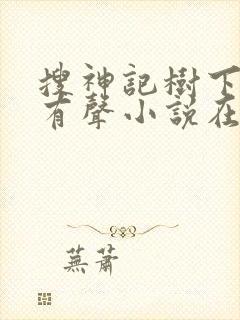 搜神記樹下
有聲小說在
蕪蕭